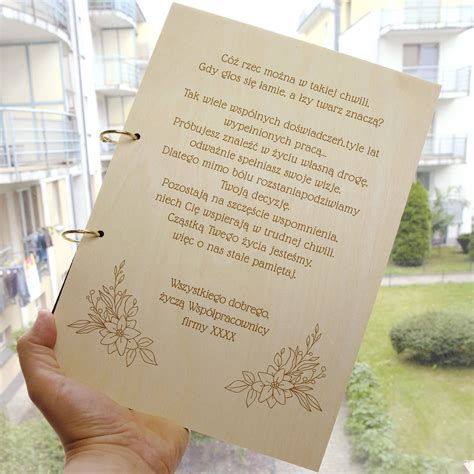 Cóż rzec można w takiej chwili,
Gdy głos się łamie, a łzy twarz znaczą?
Tak wiele wspólnych doświadczeń,tyle lat
wypełnionych pracą...
Próbujesz znaleźć w życiu własną drogę,
odważnie spełniasz swoje wizje.
Dlatego mimo bólu rozstaniapodziwiamy
Twoją decyzję.
Pozostają na szczęście wspomnienia,
niech Cię wspierają w trudnej chwili.
Cząstką Twego życia jesteśmy,
więc o nas stale pamiętaj.
Wszystkiego dobrego,
życzą Współpracownicy
firmy XXXX